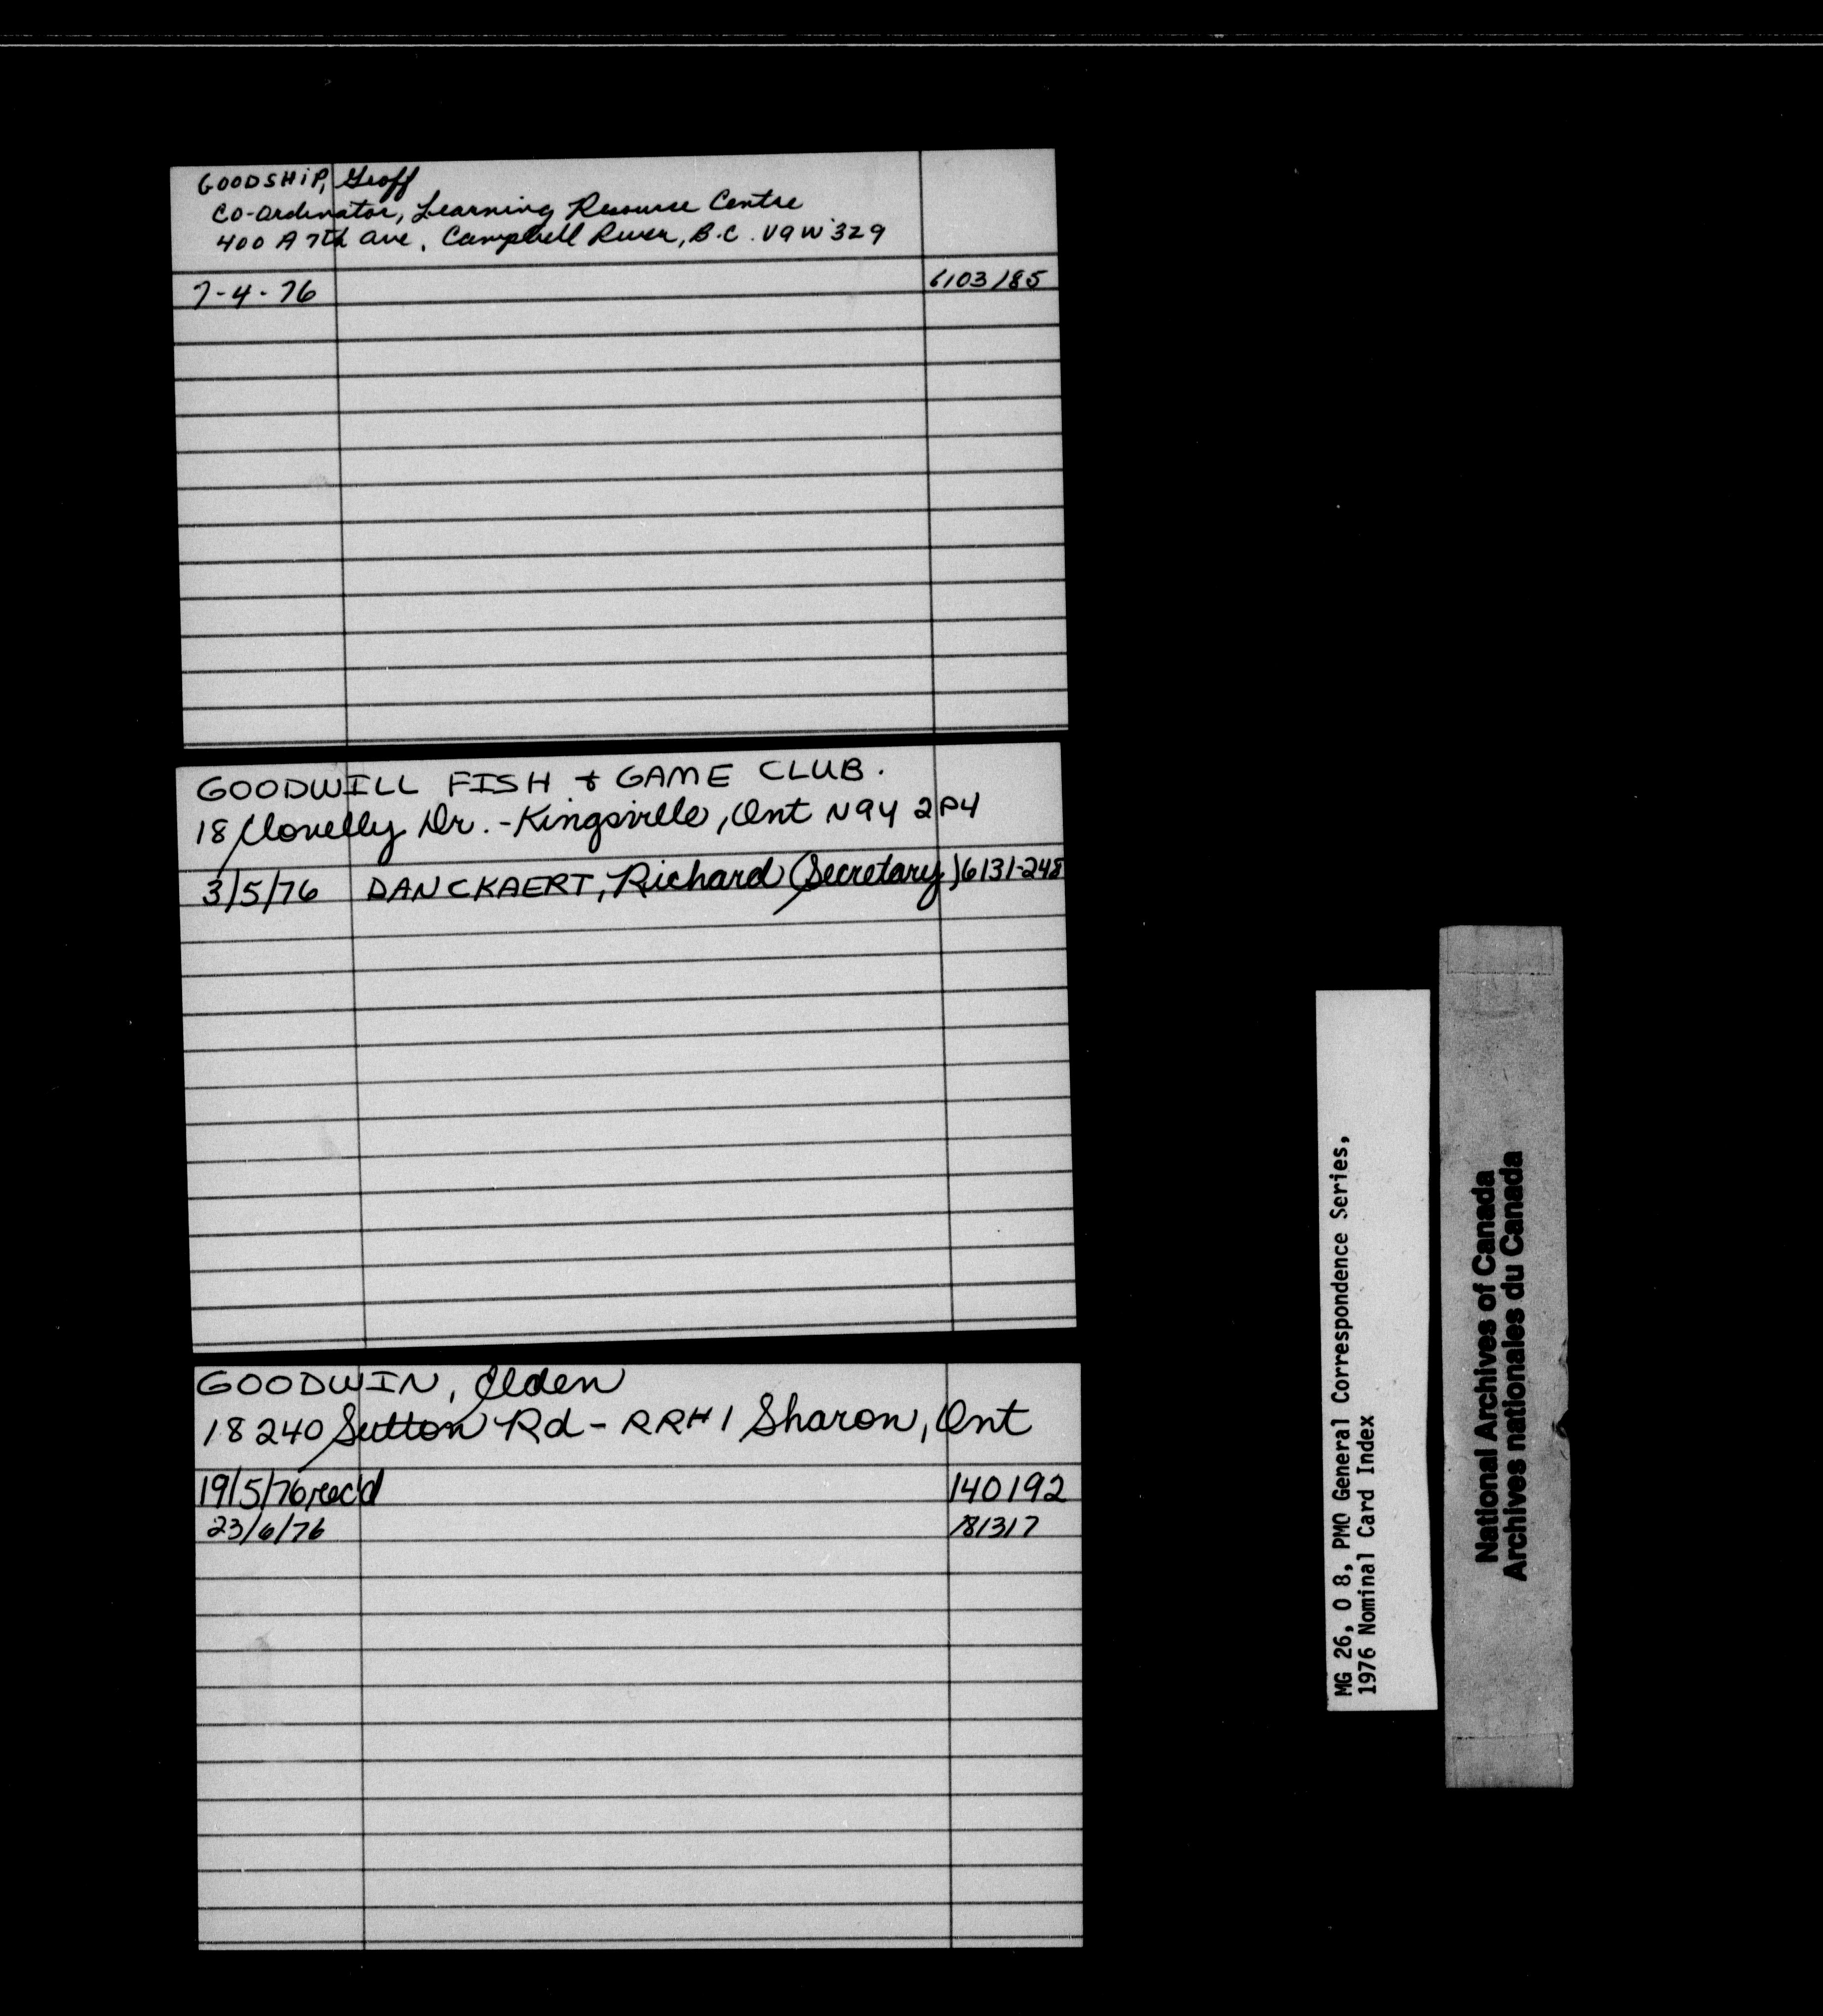 GOODSHIP, Geoff
Co-Ordinator, Learning Resource Centre
400 A 7th Ave, Campbell River, B.C. V9W 3Z9
7-4-76 6103185
GOODWILL FISH & GAME CLUB.
18 Clovelly Dr. - Kingsville, Ont N9Y 2P4
3/5/76 DANCKAERT, Richard (Secretary) 6131-248
GOODWIN, Elden
18240 Sutton Rd - RR#1 Sharon, Ont
19/5/76 rec'd 140192
23/6/76 181317
MG 26, O 8, PMO General Correspondence Series,
1976 Nominal Card Index
National Archives of Canada
Archives nationales du Canada